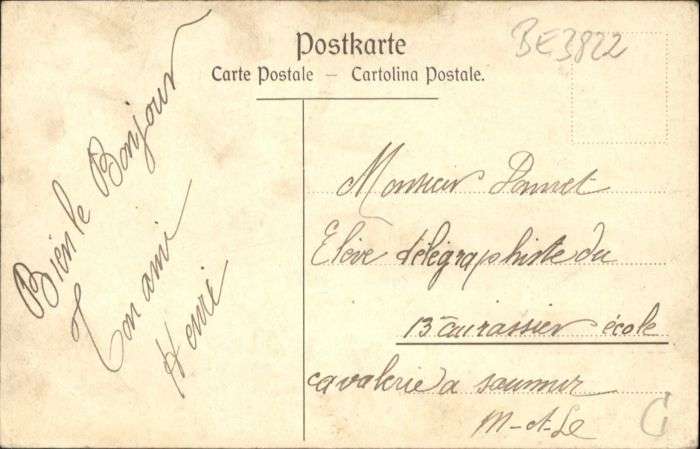 Postkarte
Carte Postale – Cartolina Postale.
BE3822
Bien le Bonjour
Ton ami
Henri
Monsieur
Elève télégraphiste du
13 cuirassier école
cavalerie a saumur
M-et-Le
C